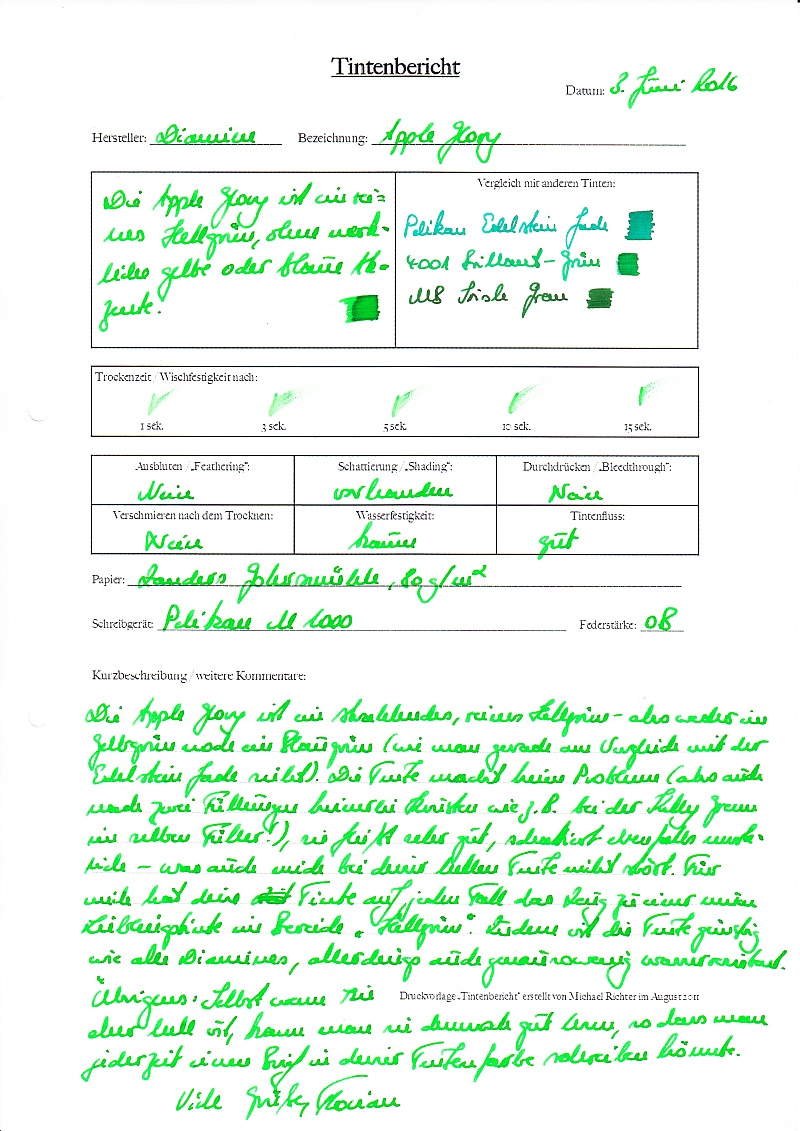 Tintenbericht
Datum: 3. Juni 2016
Hersteller: Diamine Bezeichnung: Apple Glory
Die Apple Glory ist ein rei=
nes Hellgrün, ohne merk-
liche gelbe oder blaue Ak-
zente.
Vergleich mit anderen Tinten:
Pelikan Edelstein Jade
4001 Brillant-Grün
MB Irish Green
Trockenzeit / Wischfestigkeit nach:
1 sek. 3 sek. 5 sek. 10 sek. 15 sek.
Ausbluten / „Feathering": Schattierung / „Shading": Durchdrücken / „Bleedthrough":
Nein vorhanden Nein
Verschmieren nach dem Trocknen: Wasserfestigkeit: Tintenfluss:
Nein kaum gut
Papier: Zanders Gohrsmühle, 80 g/m²
Schreibgerät: Pelikan M 1000 Federstärke: OB
Kurzbeschreibung / weitere Kommentare:
Die Apple Glory ist ein strahlendes, reines Hellgrün - also weder ein
Gelbgrün noch ein Blaugrün (wie man gerade am Vergleich mit der
Edelstein Jade sieht). Die Tinte macht keine Probleme (also auch
nach zwei Füllungen keinerlei Kristalle wie z.B. bei der Kelly Green
im selben Füller!), sie fließt sehr gut, schattiert ebenfalls merk-
lich - was auch mich bei dieser hellen Tinte nicht stört. Für
mich hat diese Tinte auf jeden Fall das Zeug zu einer neuen
Lieblingstinte im Bereich „Hellgrün". Zudem ist die Tinte günstig
wie alle Diamines, allerdings auch genauso wenig wasserresistent.
Druckvorlage „Tintenbericht" erstellt von Michael Richter im August 2011
Übrigens: Selbst wenn sie
eher hell ist, kann man sie dennoch gut lesen, so dass man
jederzeit einen Brief in dieser Tintenfarbe schreiben könnte.
Viele Grüße, Florian